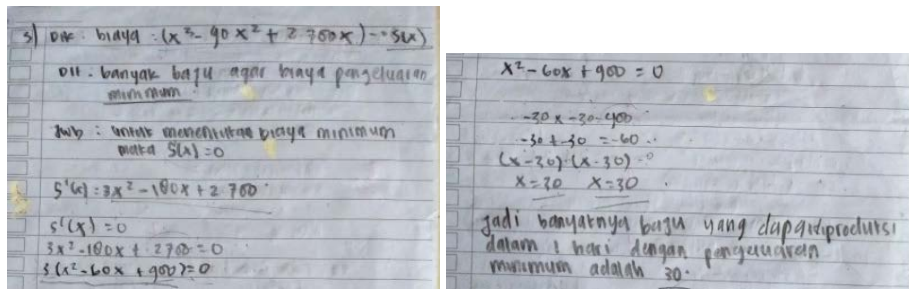 5) Dik : biaya : (x³ - 90x² + 2.700x) → S(x)
Dit : banyak baju agar biaya pengeluaran
minimum
Jwb : untuk menentukan biaya minimum
maka S'(x) = 0
S'(x) : 3x² - 180x + 2.700
S'(x) = 0
3x² - 180x + 2700 = 0
3(x² - 60x + 900) = 0
x² - 60x + 900 = 0
-30 x -30 = 900
-30 + -30 = -60
(x-30) (x-30) = 0
x = 30 x = 30
Jadi banyaknya baju yang dapat diproduksi
dalam 1 hari dengan pengeluaran
minimum adalah 30.